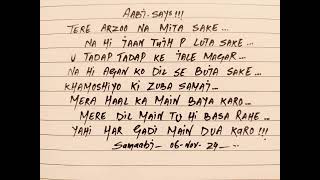 AABI-SAYS!!!
TERE ARZOO NA MITA SAKE...
NA HI JAAN TUJH P LUTA SAKE...
U TADAP TADAP KE JALE MAGAR...
NA HI AGAN KO DIL SE BUJA SAKE...
KHAMOSHIYO KI ZUBA SAMAJ...
MERA HAAL KA MAIN BAYA KARO...
MERE DIL MAIN TU HI BASA RAHE...
YAHI HAR GADI MAIN DUA KARO!!!
Samaabi- 06-Nov-24-..